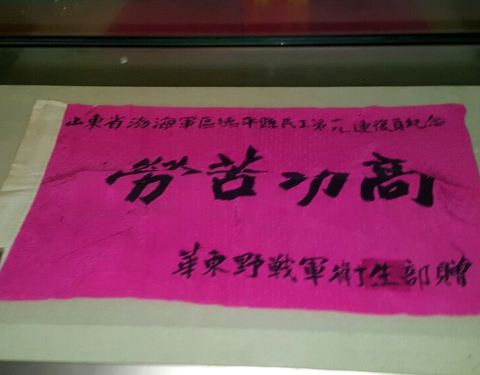 山東省渤海軍區德平縣民工第一九連復員紀念
勞苦功高
華東野戰軍衛生部贈